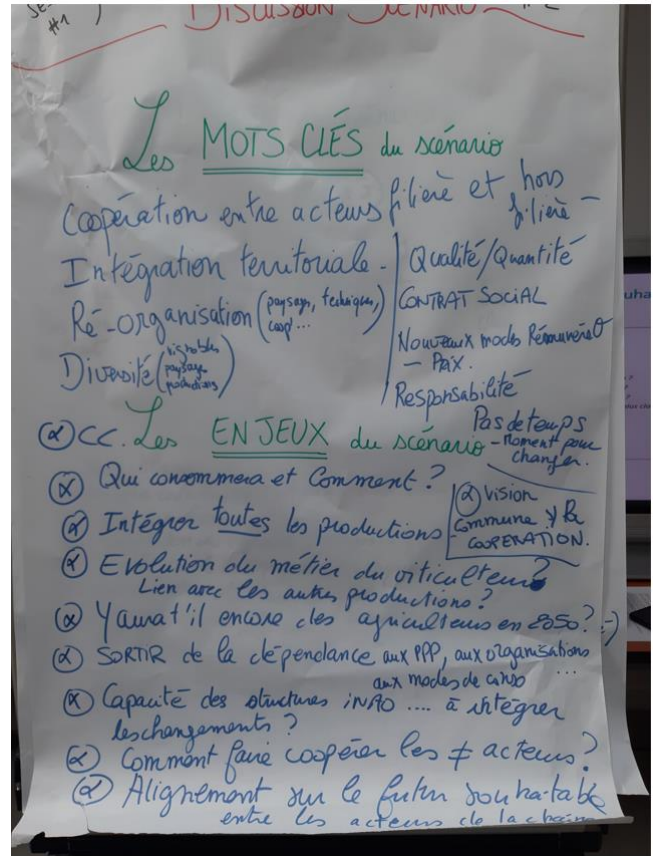 #1
DISCUSSION SCÉNARIO
Les MOTS CLÉS du scénario
Coopération entre acteurs filière et hors filière -
Intégration territoriale -
Ré-organisation (paysage, techniques, coop°...
Diversité (vignobles paysage productions)
Qualité/Quantité
CONTRAT SOCIAL
Nouveaux modes Rémunérat°
- PRIX.
Responsabilité
Pas de temps
- Moment pour
changer.
α CC. Les ENJEUX du scénario
α Qui consommera et Comment ?
α Intégrer toutes les productions
α Vision
Commune
COOPERATION.
α Evolution du métier du viticulteur ?
Lien avec les autres productions ?
α Y aurat'il encore des agriculteurs en 2050 ? :-)
α SORTIR de la dépendance aux PPP, aux organisations
aux modes de conso ...
α Capacité des structures INAO .... à intégrer
les changements ?
α Comment faire coopérer les ≠ acteurs ?
α Alignement sur le futur souhaitable
entre les acteurs de la chaine